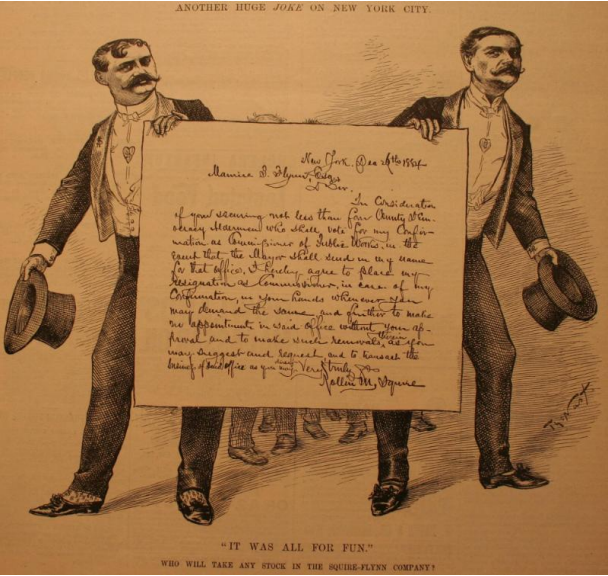 ANOTHER HUGE JOKE ON NEW YORK CITY.
New York. Dec 26th 1884
Maurice B. Flynn, Esq.
Dr Sir.
In Consideration
of your securing not less than four County Dem-
ocracy Aldermen who shall vote for my Confir-
mation as Commissioner of Public Works, in the
event that the Mayor shall send in my name
for that office, I hereby agree to place my
resignation as Commissioner, in case of my
Confirmation, in your hands whenever you
may demand the same, and further to make
no appointment in said office without your ap-
proval and to make such removals therein as you
may suggest and request, and to transact the
business of said office as you may direct. Very truly
Rollin M. Squire
Th. Nast
"IT WAS ALL FOR FUN."
WHO WILL TAKE ANY STOCK IN THE SQUIRE-FLYNN COMPANY?